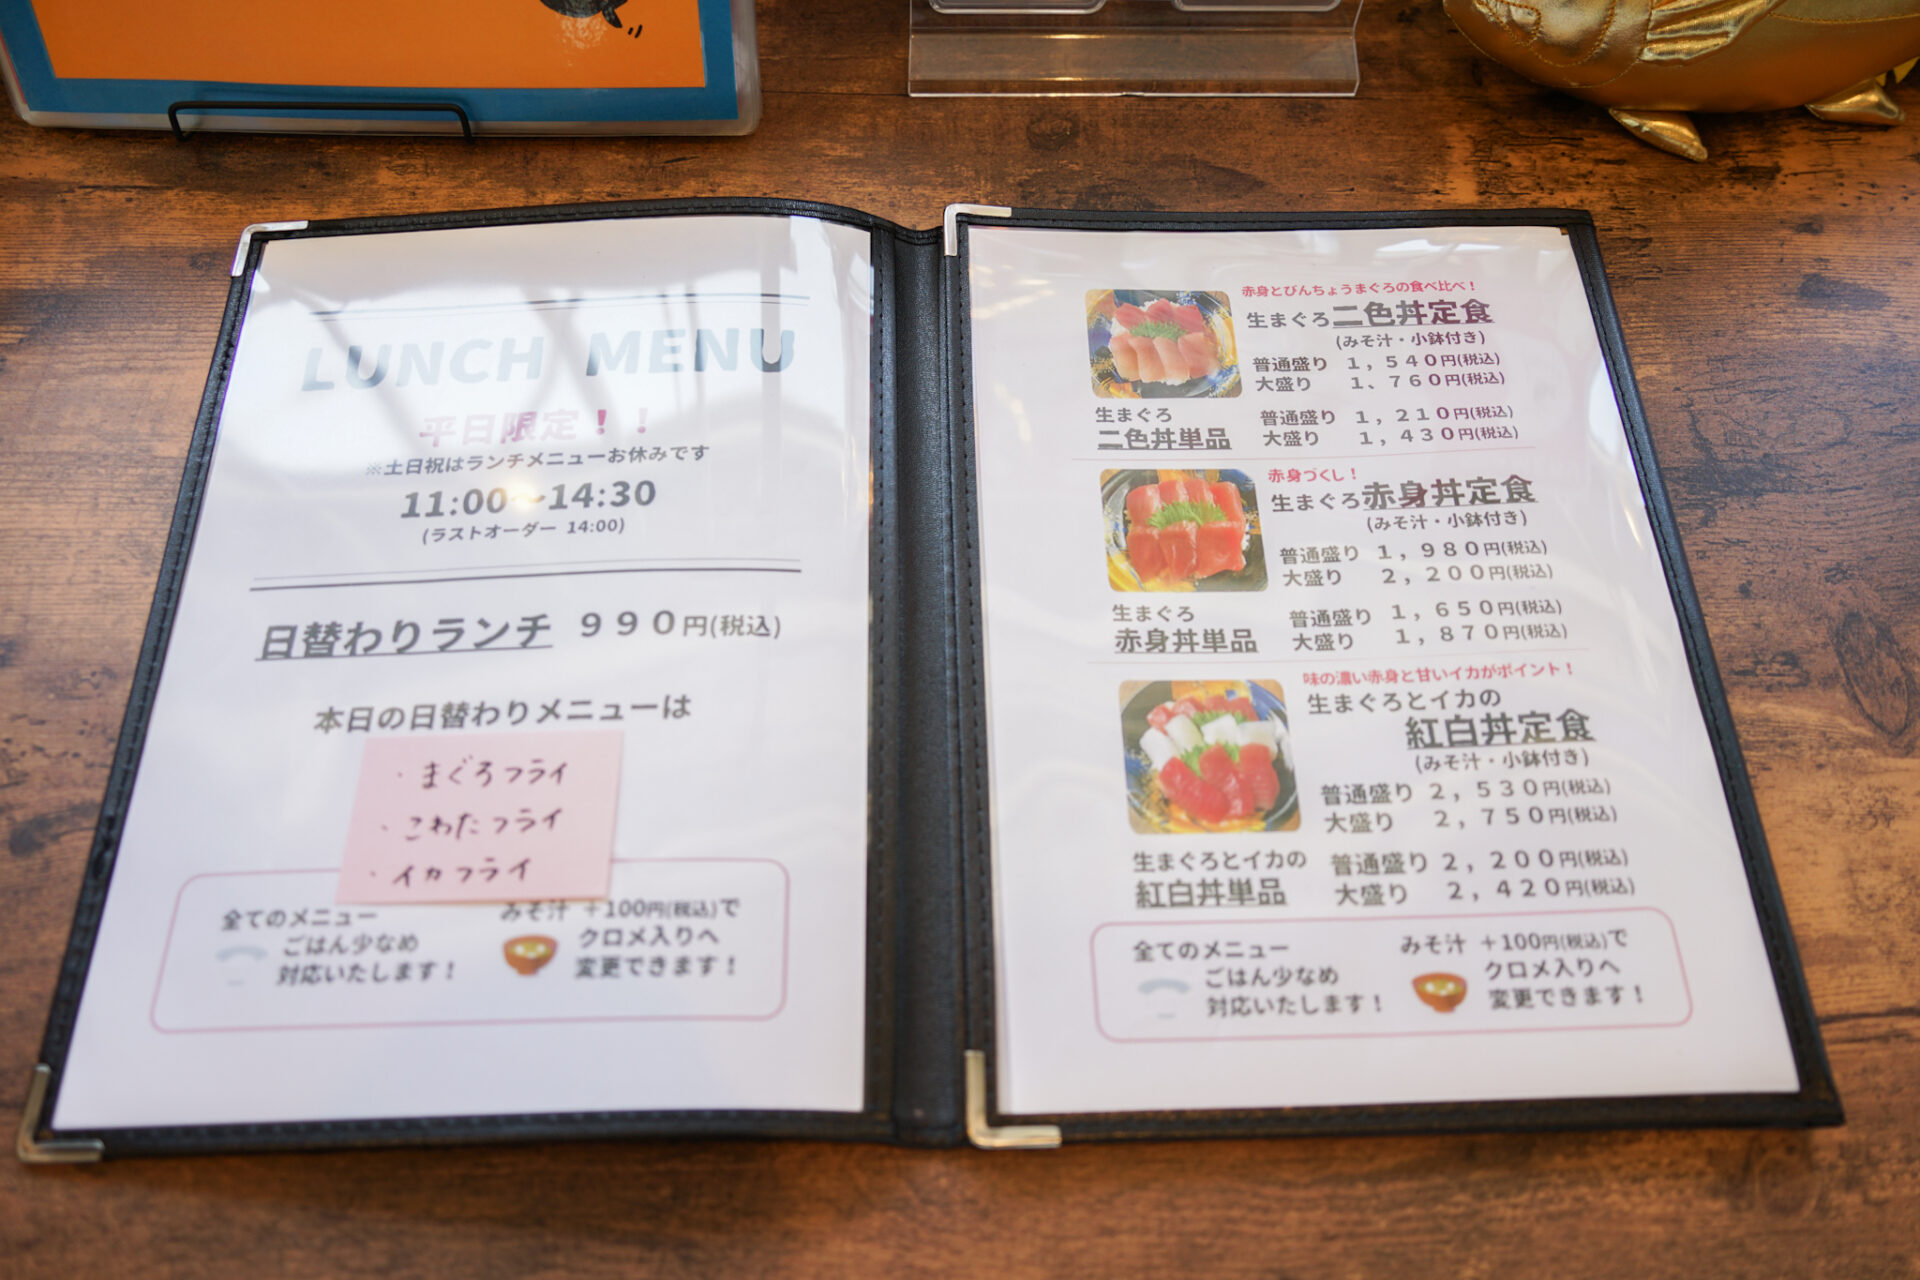 LUNCH MENU
平日限定！！
※土日祝はランチメニューお休みです
11:00～14:30
(ラストオーダー 14:00)
日替わりランチ ９９０円(税込)
本日の日替わりメニューは
・まぐろフライ
・こわたフライ
・イカフライ
全てのメニュー
ごはん少なめ
対応いたします！
みそ汁 ＋100円(税込)で
クロメ入りへ
変更できます！
赤身とびんちょうまぐろの食べ比べ！
生まぐろ二色丼定食
(みそ汁・小鉢付き)
普通盛り １，５４０円(税込)
大盛り １、７６０円(税込)
生まぐろ
二色丼単品
普通盛り １，２１０円(税込)
大盛り １，４３０円(税込)
赤身づくし！
生まぐろ赤身丼定食
(みそ汁・小鉢付き)
普通盛り １，９８０円(税込)
大盛り ２，２００円(税込)
生まぐろ
赤身丼単品
普通盛り １，６５０円(税込)
大盛り １，８７０円(税込)
味の濃い赤身と甘いイカがポイント！
生まぐろとイカの
紅白丼定食
(みそ汁・小鉢付き)
普通盛り ２，５３０円(税込)
大盛り ２，７５０円(税込)
生まぐろとイカの
紅白丼単品
普通盛り ２，２００円(税込)
大盛り ２，４２０円(税込)
全てのメニュー
ごはん少なめ
対応いたします！
みそ汁 ＋100円(税込)で
クロメ入りへ
変更できます！